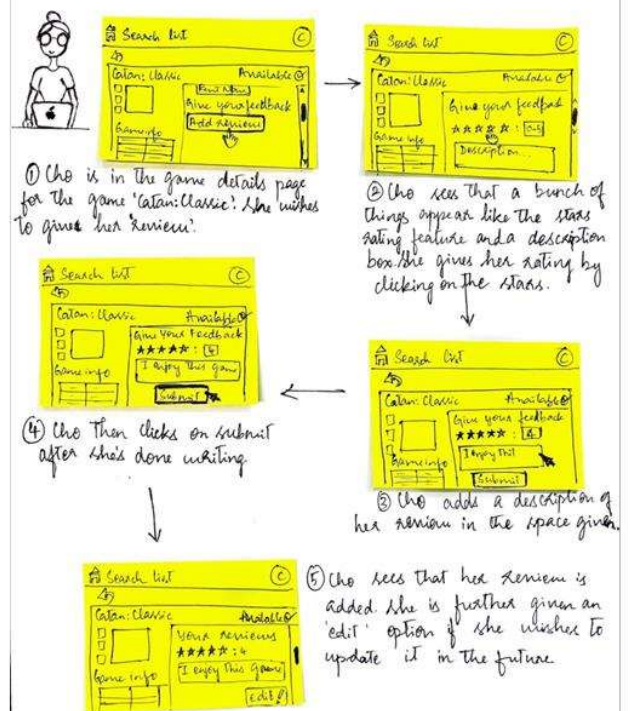 Search list C
Catan: Classic Available
Rent Now
Give your feedback
Add review
Game info
① Cho is in the game details page
for the game 'Catan: Classic'. She wishes
to give her 'review'.
Search list C
Catan: Classic Available
Give your feedback
★★★★★ : 0-5
Game Info
Description...
② Cho sees that a bunch of
things appear like the stars
rating feature and a description
box. She gives her rating by
clicking on the stars.
Search list C
Catan: Classic Available
Give your feedback
★★★★★ : 4
Game info
I enjoy this
Submit
③ Cho adds a description of
her review in the space given.
Search list C
Catan: Classic Available
Give Your Feedback
★★★★★ : 4
Game info
I enjoy this game
Submit
④ Cho then clicks on submit
after she's done writing
Search list C
Catan: Classic Available
Your reviews
★★★★★ : 4
Game info
I enjoy this game
Edit
⑤ Cho sees that her review is
added. She is further given an
'edit' option if she wishes to
update it in the future